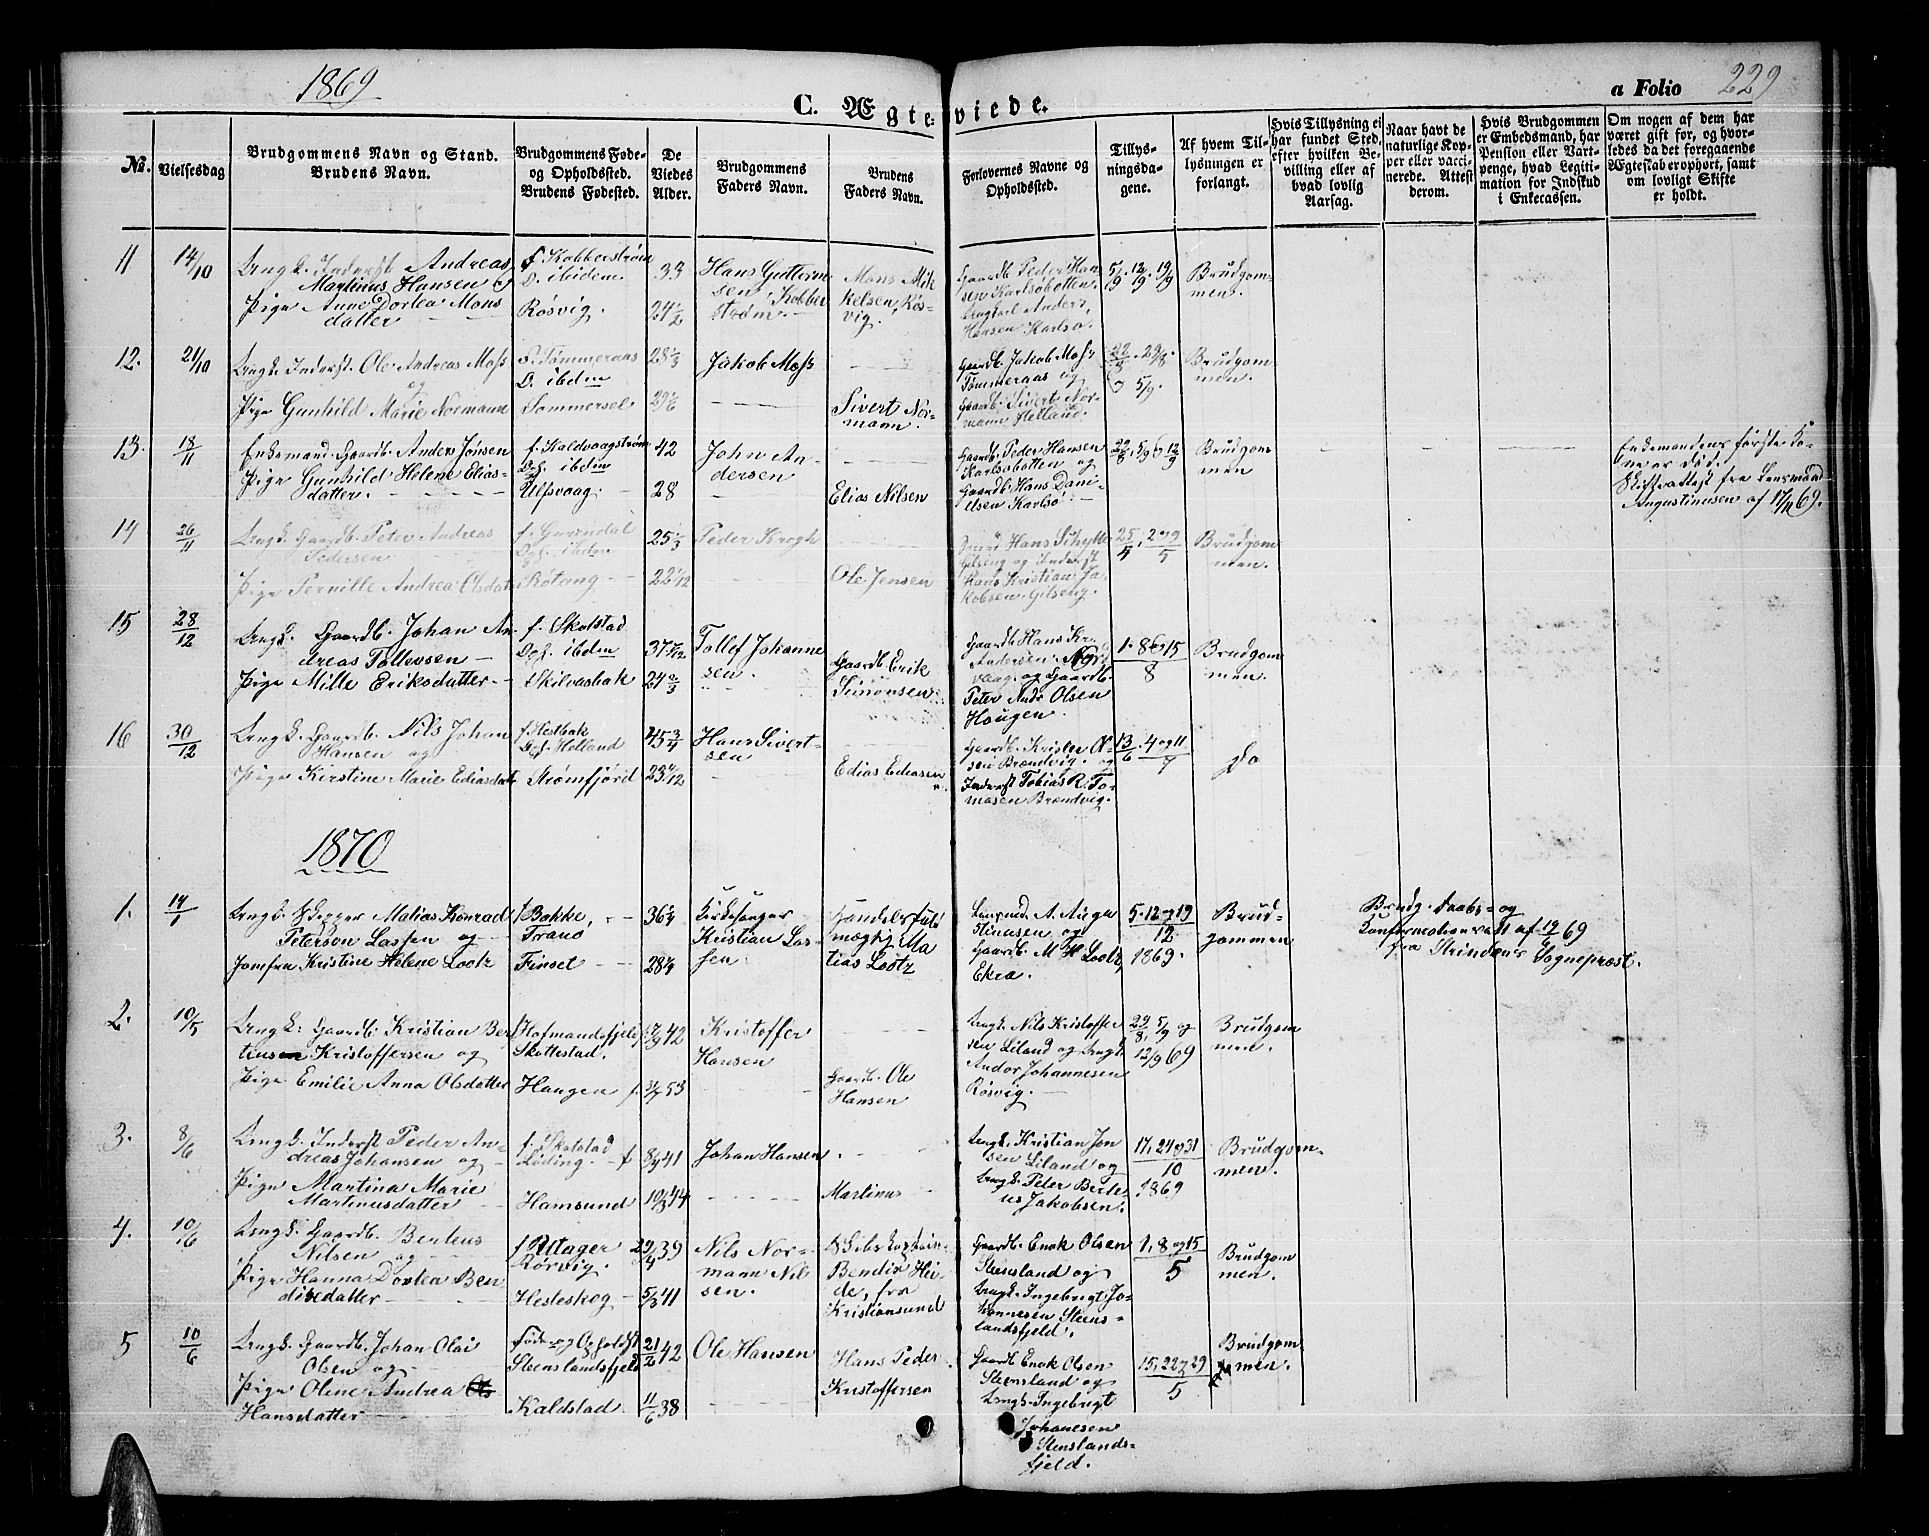 1869
229
C. Ægteviede.
a Folio
No.
Vielsesdag
Brudgommens Navn og Stand.
Brudens Navn.
Brudgommens Føde-
og Opholdssted.
Brudens Fødested.
De
Viedes
Alder.
Brudgommens
Faders Navn.
Brudens
Faders Navn.
Forlovernes Navne og
Opholdssted.
Tillys-
ningsda-
gene.
Af hvem Til-
lysningen er
forlangt.
Hvis Tillysning ei
har fundet Sted,
efter hvilken Be-
villing eller af
hvad lovlig
Aarsag.
Naar havt de
naturlige Kop-
per eller vacci-
nerede. Attest
derom.
Hvis Brudgommen
er Embedsmand, har
Pension eller Vart-
penge, hvad Legiti-
mation for Indskud
i Enkecassen.
Om nogen af dem har
været gift før, og hvor-
ledes da det foregaaende
Ægteskab ophørt, samt
om lovligt Skifte
er holdt.
11 14/10
Ungk. Inderst Andreas
Martinus Hansen og
Pige Anne Dortea Mons
datter
f. Kobberstrøm
O. ibidem
Røsvig.
33
24 1/2
Hans Guttorm
sen Kobber
strøm.
Mons Mik
kelsen, Røs-
vig.
Gaardb. Peder Han
sen Karlsøbotten.
Ungkarl Anders
Hansen Karlsø.
5/9. 12/9. 19/9
Brudgom-
men.
12. 21/10
Ungk. Inderst. Ole Andreas Moss
og
Pige Gunhild Marie Normann
f. Tømmeraas
O. ibdm
Sommersel
28 1/3
29 1/6
Jakob Moss
Sivert Nor-
mann.
Gaardb. Jakob Moss
Tømmeraas og
Gaardb. Sivert Nor-
mann Helland.
22/8. 29/8.
og 5/9.
Brudgom
men.
13. 18/11
Enkemand Gaardb. Anders Jonsen
Pige Gunhild Helene Elias-
datter.
f. Kaldvaagstrøm
ibdm
Ulfsvaag.
42
28
John An-
dersen
Elias Nilsen
Gaardb. Peder Hansen
Karlsøbotten og
Gaardb. Hans Dani-
elsen Karlsø.
22/8. 5/9 og 12/9
Brudgom
men
Enkemandens første Ko-
ne er død.
Skifteattest fra Lensmand
Augustinusen af 17/11 69.
14 26/11
Ungk. Gaardb. Peter Andreas
Pedersen
Pige Pernille Andrea Olsdatr
ibdm
Røtang
25 1/3
22 1/12
Peder Krogh
Ole Jensen
Hans Schytte
Gilseng og Inderst
Hans Kristian Ja-
kobsen Gilseng.
25/4, 2 og 9/5
Brudgom
men.
15 28/12
Ungk. Gaardb. Johan An-
dreas Tollevsen
Pige Mille Eriksdatter
f. Skotstad
ibdm
Skilvasbak
37
24 2/3
Tollef Johanne
sen.
Gaardb. Erik
Simonsen
Gaardb. Hans Kr.
Andersen Nord
vaag. og Gaardb.
Peter Andr. Olsen
Haugen.
1. 8 og 15
8
Brudgom
men.
16 30/12
Ungk. Gaardb. Nils Johan
Hansen og
Pige Kirstine Marie Ediasdatr
f. Hestbak
Helland
Strømfjord
45 3/4
23
Hans Sivert-
sen
Edias Ediasen
Gaardb. Krister Ol-
sen Brændvig. og
Inderst Tobias R. To-
masen Brændvig.
13/6. 4 og 11
7
Do
1870
1. 14/1
Ungk. Skipper Matias Konrad
Peterson Lassen og
Jomfru Kristine Helene Lootz
f Bakke,
Tranø
Finset
36 1/4
28 1/4
Kirkesanger
Kristian Las-
sen.
Handelsfuld
mægtig Ma
tias Lootz
Lensmd. A. Augu
stinusen og
Gaardb. M H Lootz
Ekra.
5. 12 og 19
12
1869.
Brud-
gommen
Brudg. Daabs- og
Konfirmationsatt af 69
fra Strindens Sognepræst.
2. 10/5
Ungk. Gaardb. Kristian Ber
tinus Kristoffersen og
Pige Emilie Anna Olsdatter
Hofmandsfjeld
Skottestad.
Haugen
42
53
Kristoffer
Hansen
Gaardb. Ole
Hansen
Ungk. Nils Kristoffer
sen Liland og Ungk.
Andor Johannesen
Røsvig.
29/8. 5/9 og
12/9 69
Brudgom
men.
3. 8/6
Ungk. Inderst Peder An-
dreas Johansen og
Pige Martina Marie
Martinusdatter
f. Skotstad
Løding.
Hamsund
41
44
Johan Hansen
Martinus
Ungk. Kristian Jon
sen Liland og
Ungk. Peter Berte-
us Jakobsen.
17, 24 og 31
10
1869
Brudgom-
men.
4. 10/6
Ungk. Gaardb. Benteus
Nilsen og
Pige Hanna Dortea Ben
diksdatter
f Uttager
Rørvig.
Hesteskog
29/4 39
5/3 41
Nils Nor-
mann Nil
sen.
Skibskaptain
Bendix Hei-
de, fra
Kristiansund
Gaardb. Enok Olsen
Steensland og
Ungk. Ingebrigt Jo-
hannesen Steens-
landsfjeld.
1, 8 og 15
5
Brudgom
men.
5 10/6
Ungk. Gaardb. Johan Olai
Olsen og
Pige Oline Andrea
Hansdatter
Føde- og Opholdst
Steenslandsfjeld
Kaldstad
21/2 42
11/6 38
Ole Hansen
Hans Peder
Kristoffersen
Gaardb Enok Olsen
Steensland og
Ungk. Ingebrigt
Johanesen
Stenslands-
fjeld.
15, 22 og 29
5
Brudgom
men.